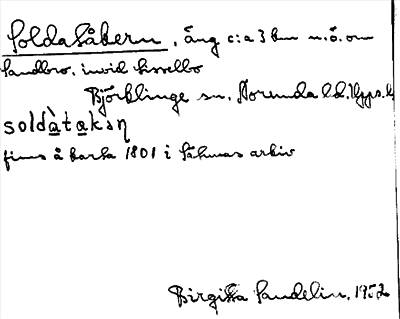 Soldatåkern, äng c:a 3 km n.ö. om
Sandbro, invid
Björklinge sn. Norunda hd. Upps. l.
soldàtakən
finns å karta 1801 i arkiv
Birgitta Sandelin, 1952